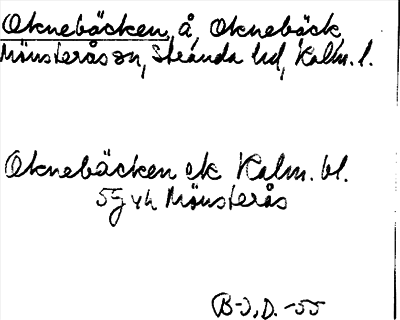 Oknebäcken, å, Oknebäck,
Mönsterås sn, Stranda hd, Kalm. l.
Oknebäcken ek Kalm. bl.
5g vh Mönsterås
B-J, D. -55